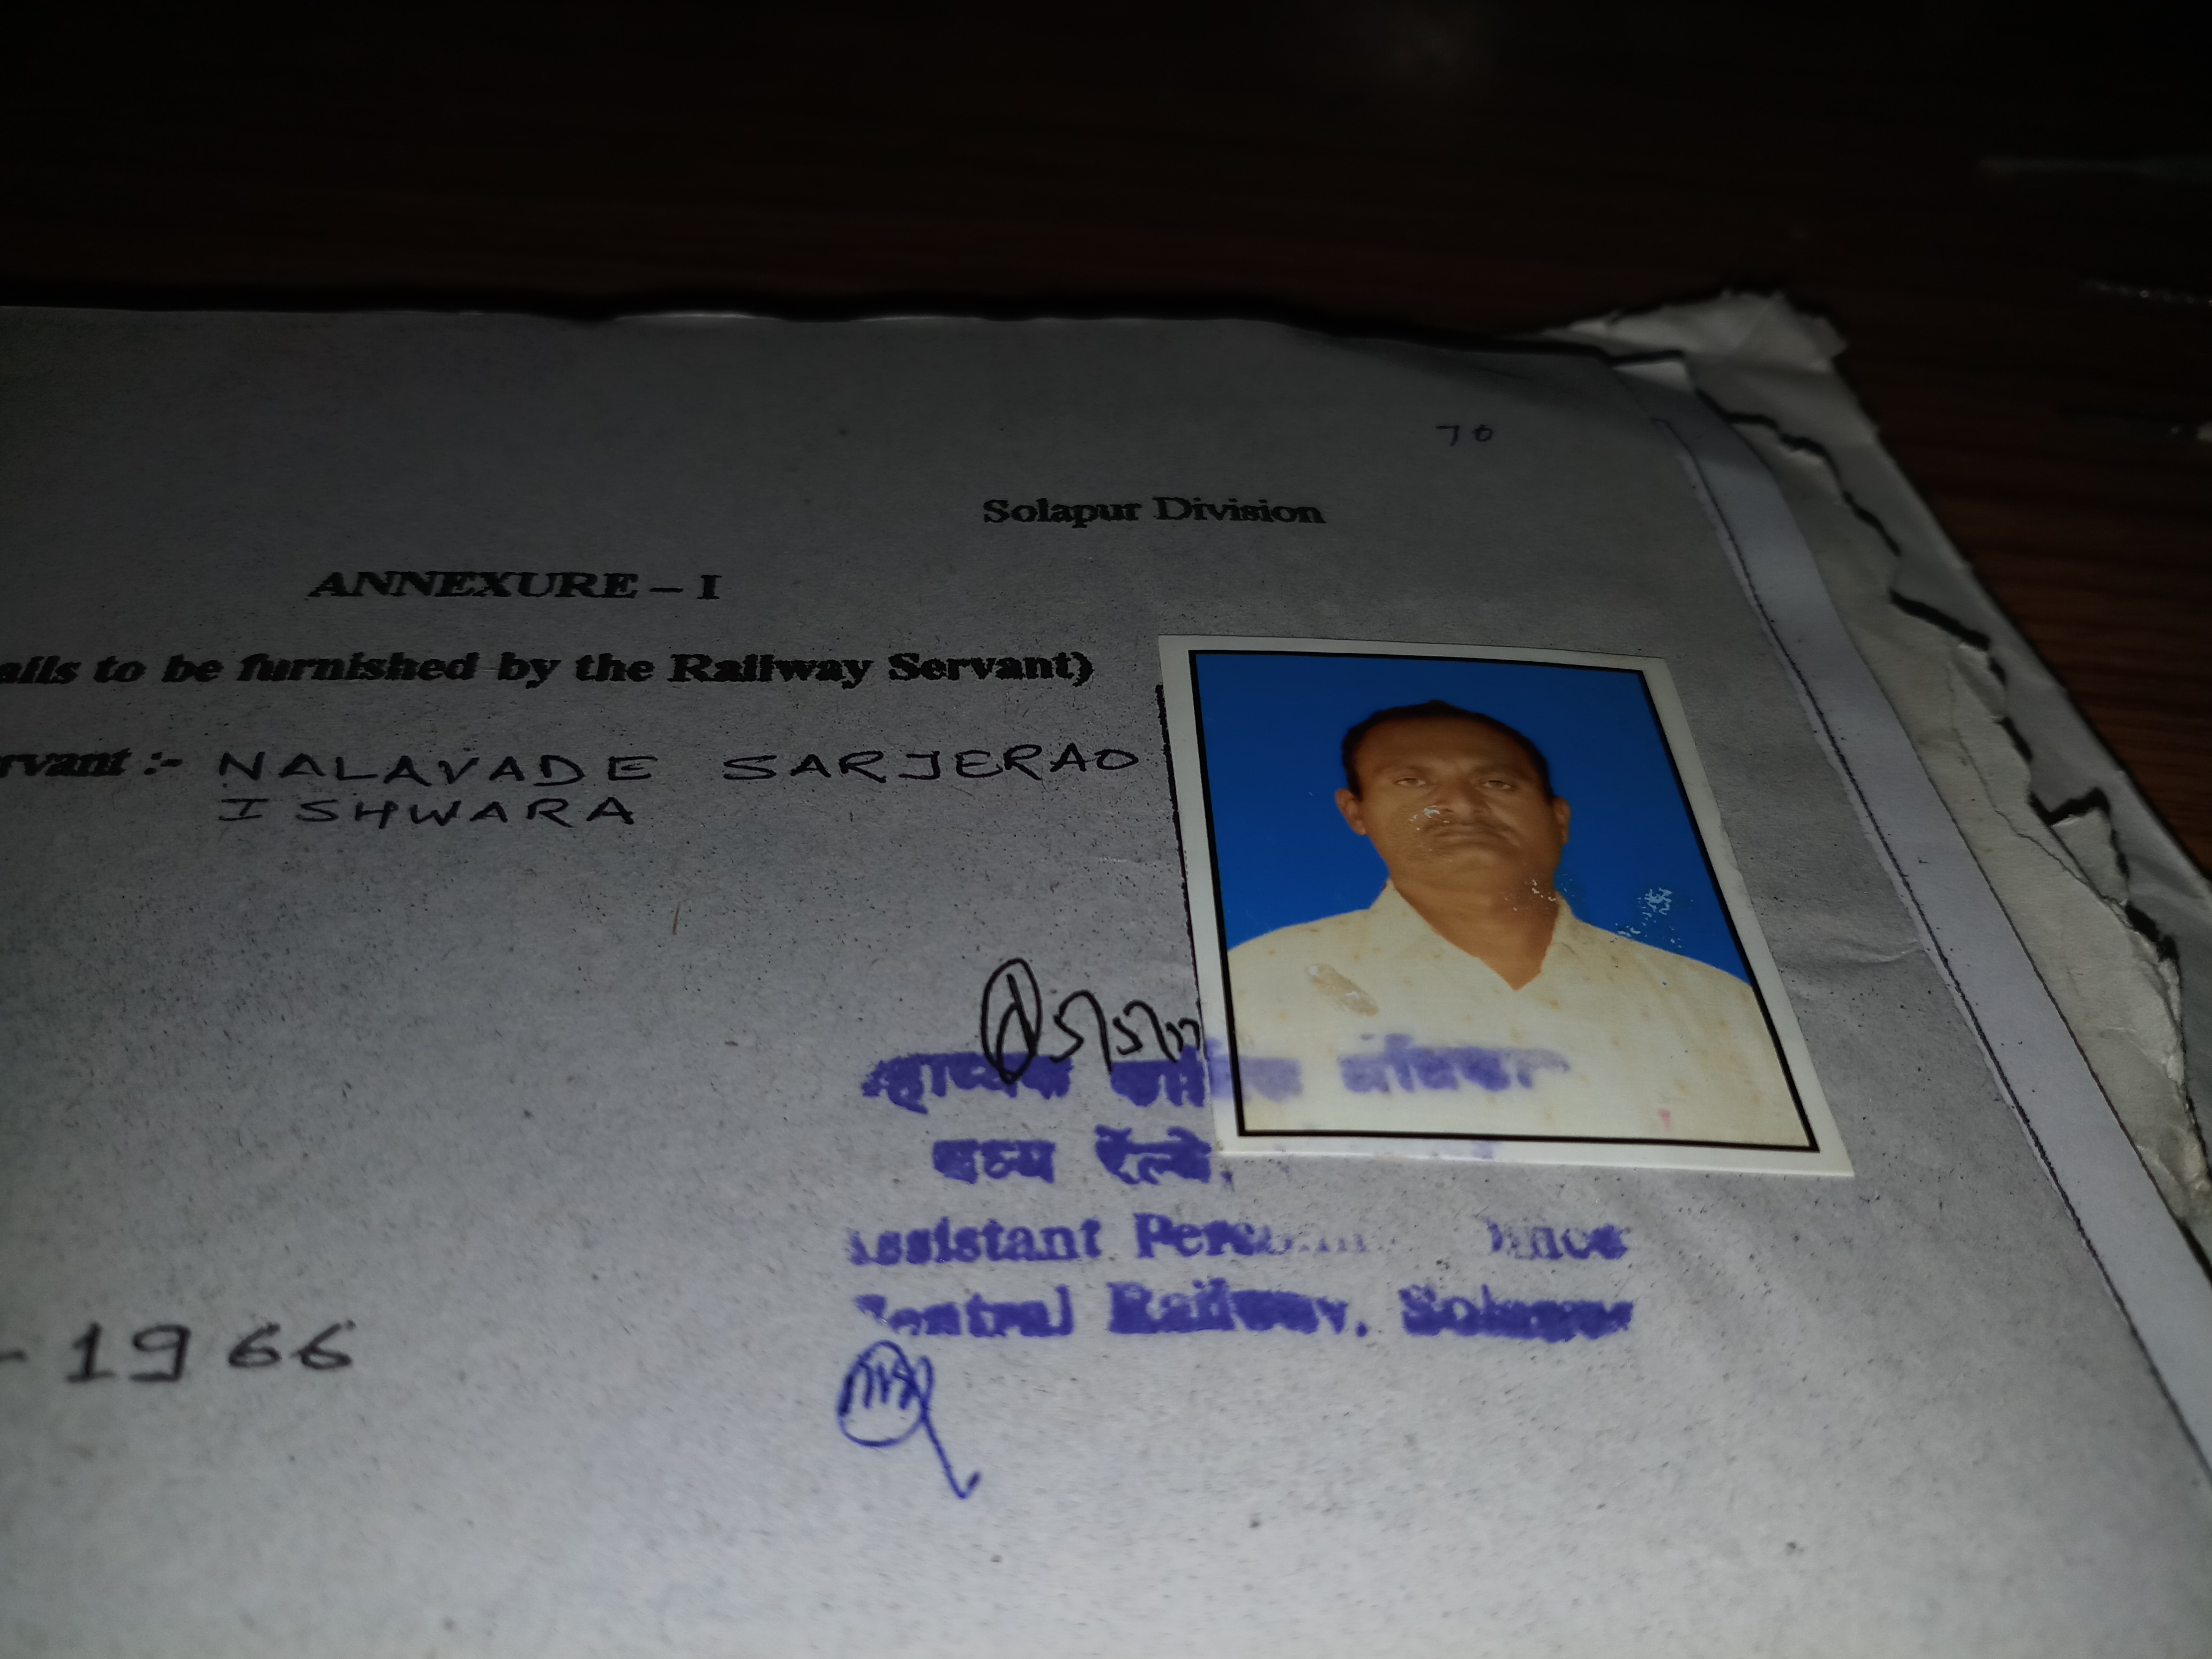 70
Solapur Division
ANNEXURE – I
ails to be furnished by the Railway Servant)
rvant :- NALAVADE SARJERAO
ISHWARA
मध्य रेल्वे,
Assistant
Central Railway, Solapur
-1966